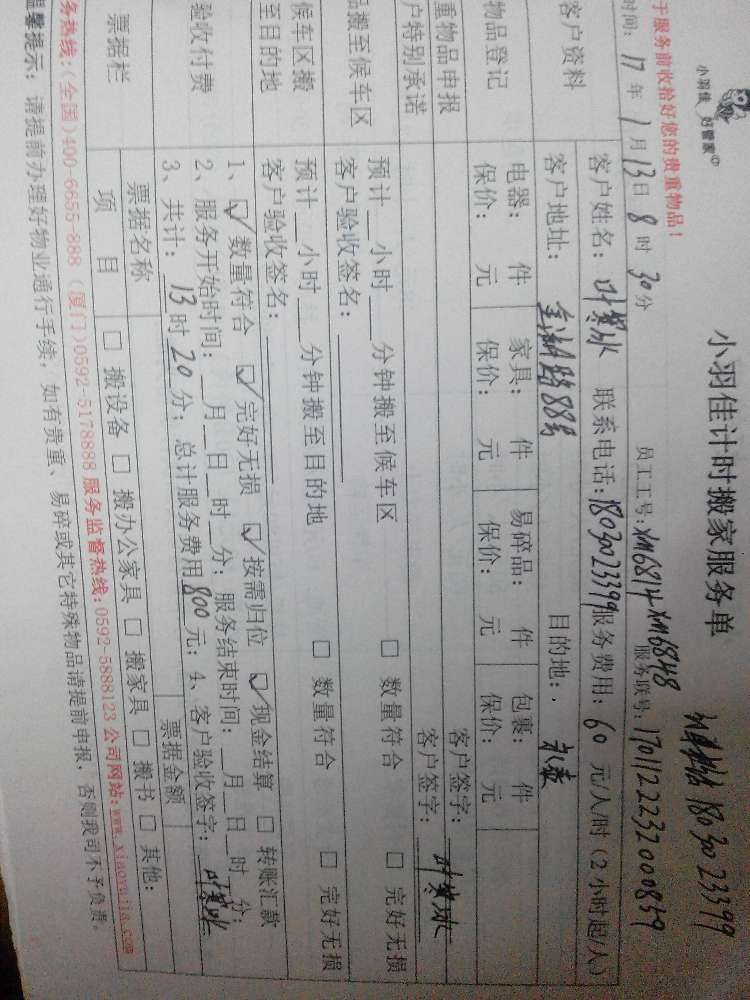 小羽佳 好管家
小羽佳计时搬家服务单
18030023399
于服务前收拾好您的贵重物品!
员工工号: xm6814 xm6848
时间: 17年1月13日8时30分
服务联号: 1701122232000859
客户资料
客户姓名: 叶寒冰 联系电话: 18030023399 服务费用: 60元/人/时(2小时起/人)
客户地址: 金湖路88号 目的地:
物品登记
电器: 件 家具: 件 易碎品: 件 包裹: 件
保价: 元 保价: 元 保价: 元 保价: 元
重物品申报 客户签字:
户特别承诺 客户签字: 叶寒冰
品搬至候车区
预计__小时__分钟搬至候车区 □ 数量符合 □ 完好无损
客户验收签名:
候车区搬
至目的地
预计__小时__分钟搬至目的地 □ 数量符合 □ 完好无损
客户验收签名:
验收付费
1、☑ 数量符合 ☑ 完好无损 ☑ 按需归位 ☑ 现金结算 □ 转账汇款
2、服务开始时间:__月__日__时__分; 服务结束时间:__月__日__时__分;
3、共计: 13时20分; 总计服务费用800元; 4、客户验收签字: 叶寒冰
票据栏
票据名称 票据金额
项 目 □ 搬设备 □ 搬办公家具 □ 搬家具 □ 搬书 □ 其他:
务热线:(全国)400-6655-888 (厦门)0592-5178888 服务监督热线:0592-5888123 公司网站:www.xiaoyujia.com
温馨提示: 请提前办理好物业通行手续, 如有贵重、易碎或其它特殊物品请提前申报, 否则我司不予负责。